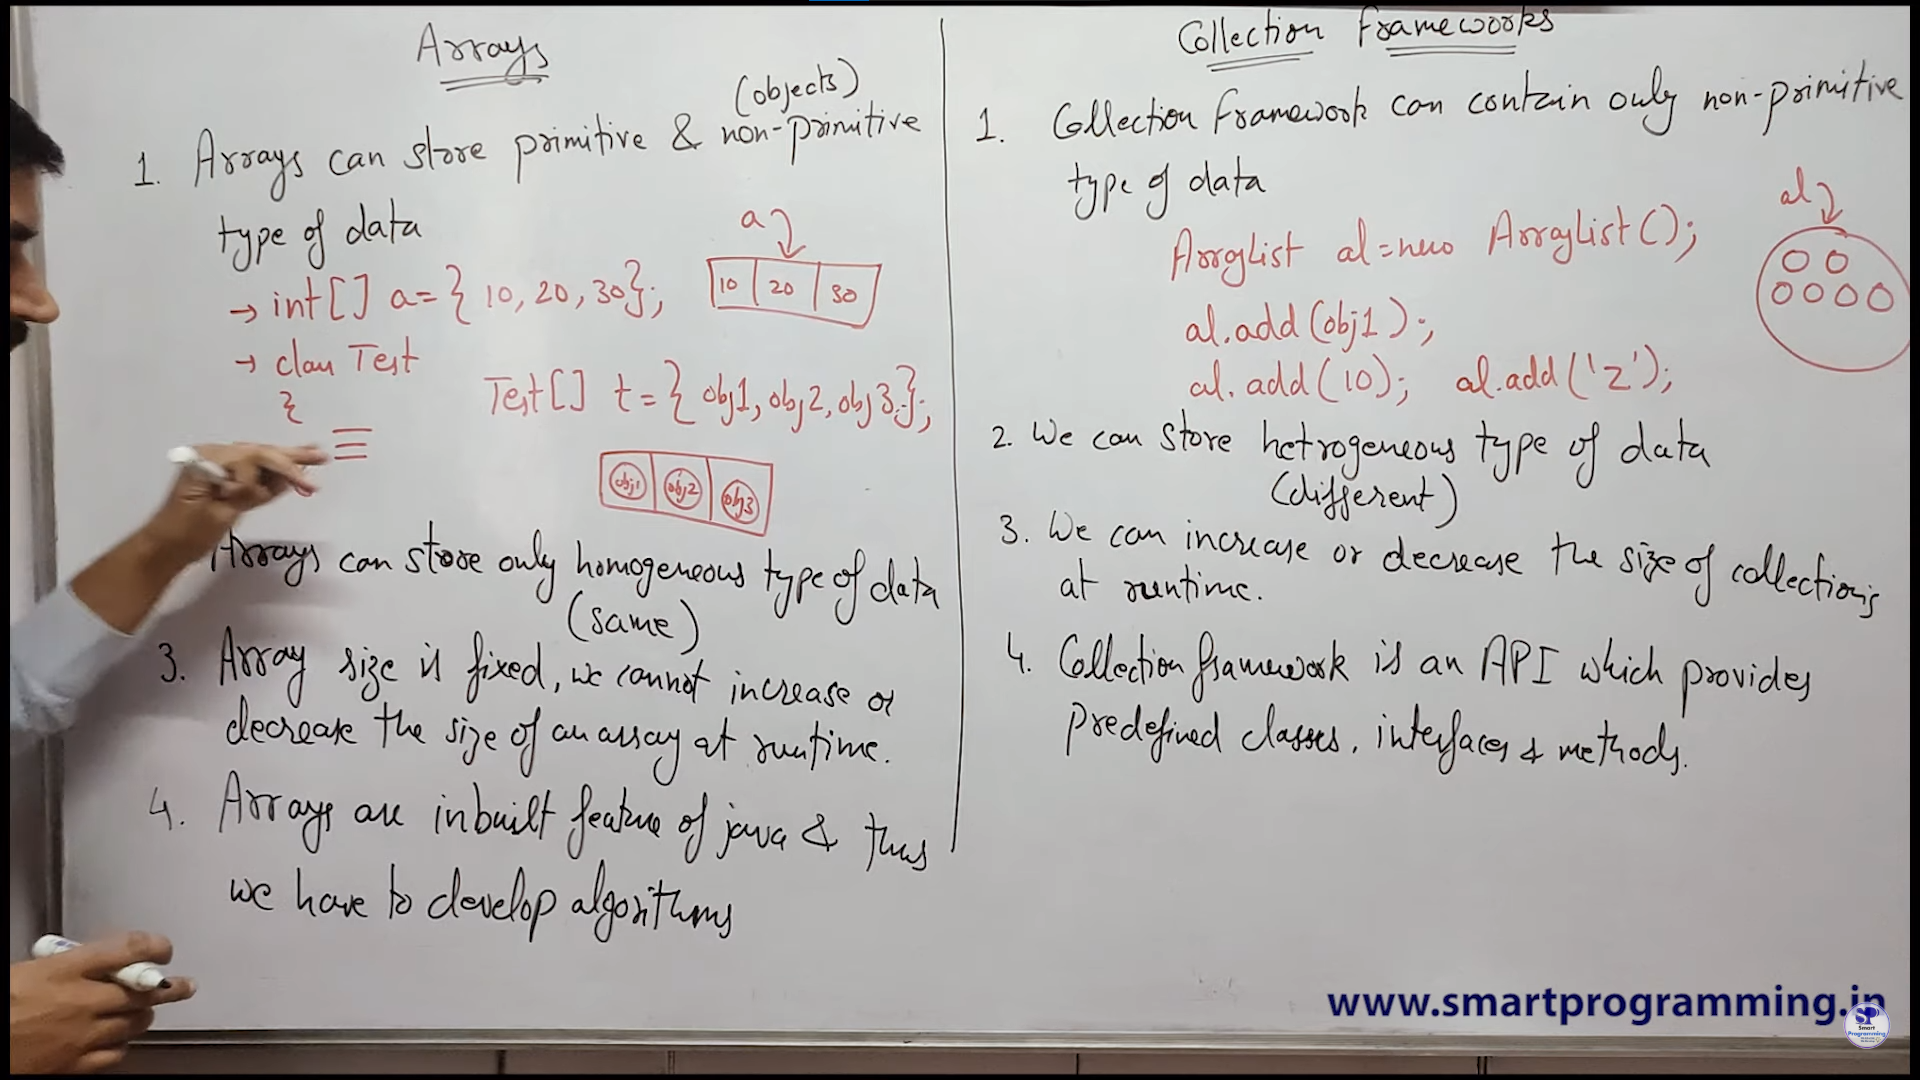 Arrays
(objects)
1. Arrays can store primitive & non-primitive
type of data
→ int[] a={10,20,30};
a
10 20 30
→ class Test
{
Test[] t={obj1, obj2, obj3};
obj1 obj2 obj3
Arrays can store only homogeneous type of data
(same)
3. Array size is fixed, we cannot increase or
decrease the size of an array at runtime.
4. Arrays are inbuilt feature of java & thus
we have to develop algorithms
Collection Frameworks
1. Collection Framework can contain only non-primitive
type of data
al
ArrayList al=new ArrayList();
al.add(obj1);
al.add(10); al.add('z');
2. We can store hetrogeneous type of data
(different)
3. We can increase or decrease the size of collections
at runtime.
4. Collection framework is an API which provides
predefined classes, interfaces & methods.
www.smartprogramming.in
SP
Smart
Programming